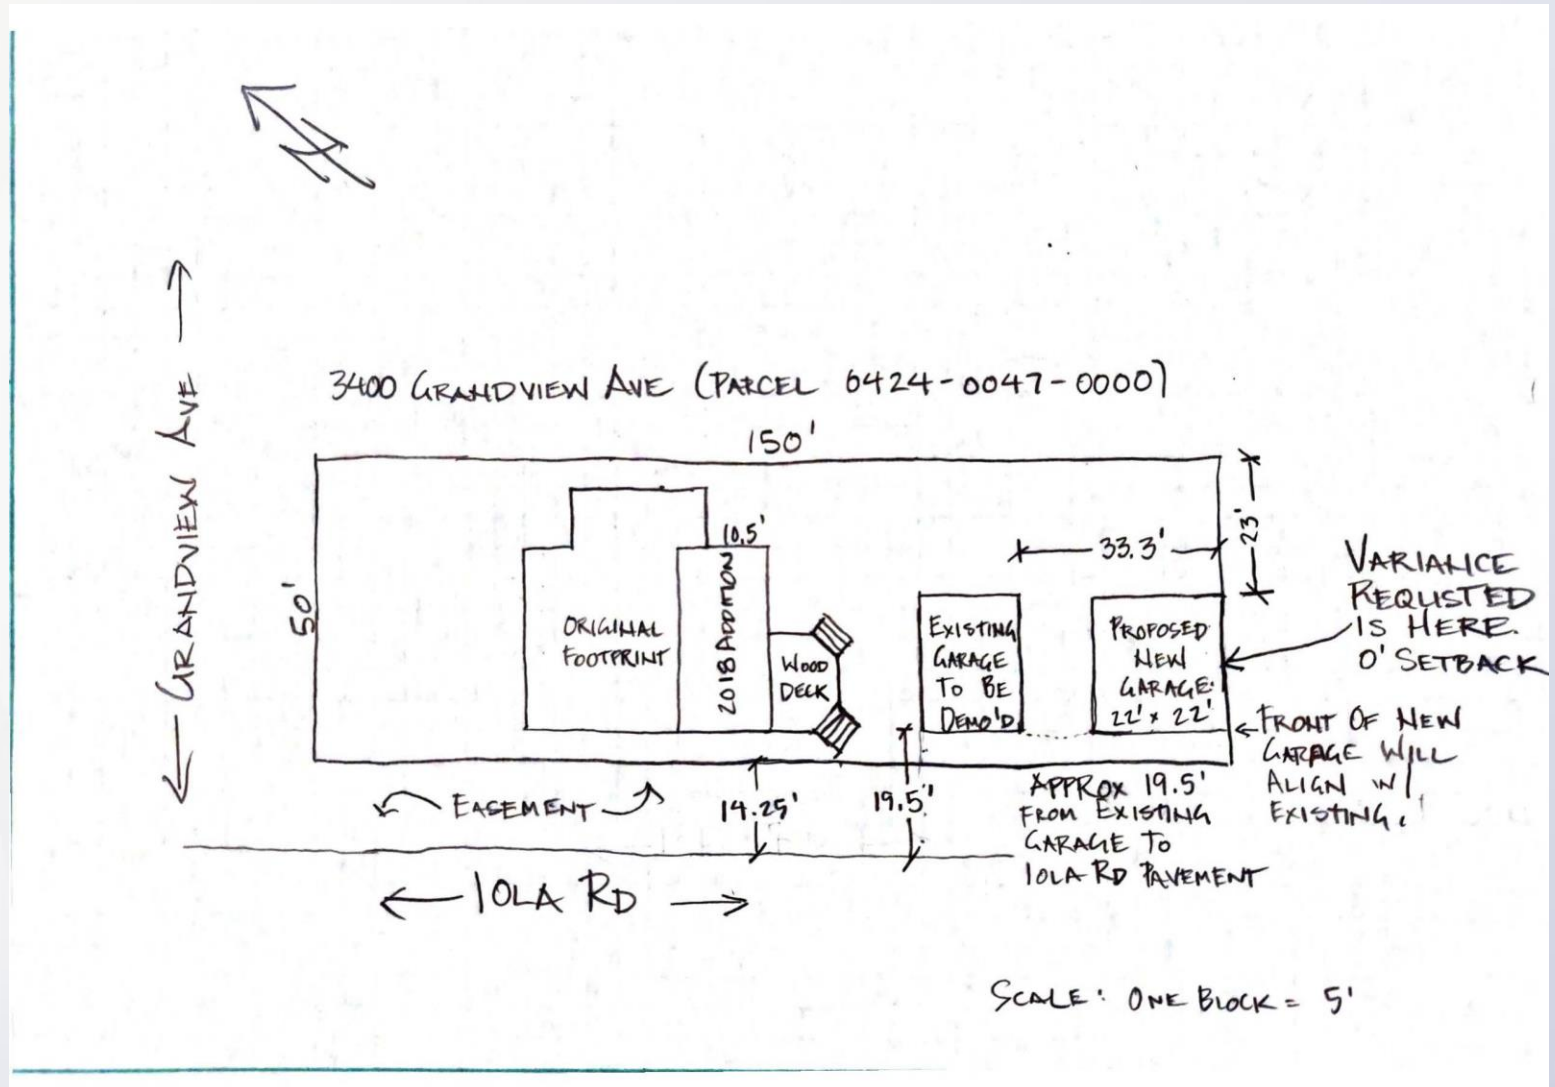 3400 GRANDVIEW AVE (PARCEL 6424-0047-0000)
150'
GRANDVIEW AVE
50'
10.5'
ORIGINAL
FOOTPRINT
2018 ADDITION
WOOD
DECK
EXISTING
GARAGE
TO BE
DEMO'D
33.3'
23'
PROPOSED
NEW
GARAGE:
22' x 22'
VARIANCE
REQUSTED
IS HERE.
0' SETBACK
FRONT OF NEW
GARAGE WILL
ALIGN W/
EXISTING.
EASEMENT
14.25'
19.5'
APPROX 19.5'
FROM EXISTING
GARAGE TO
IOLA RD PAVEMENT
IOLA RD
SCALE: ONE BLOCK = 5'